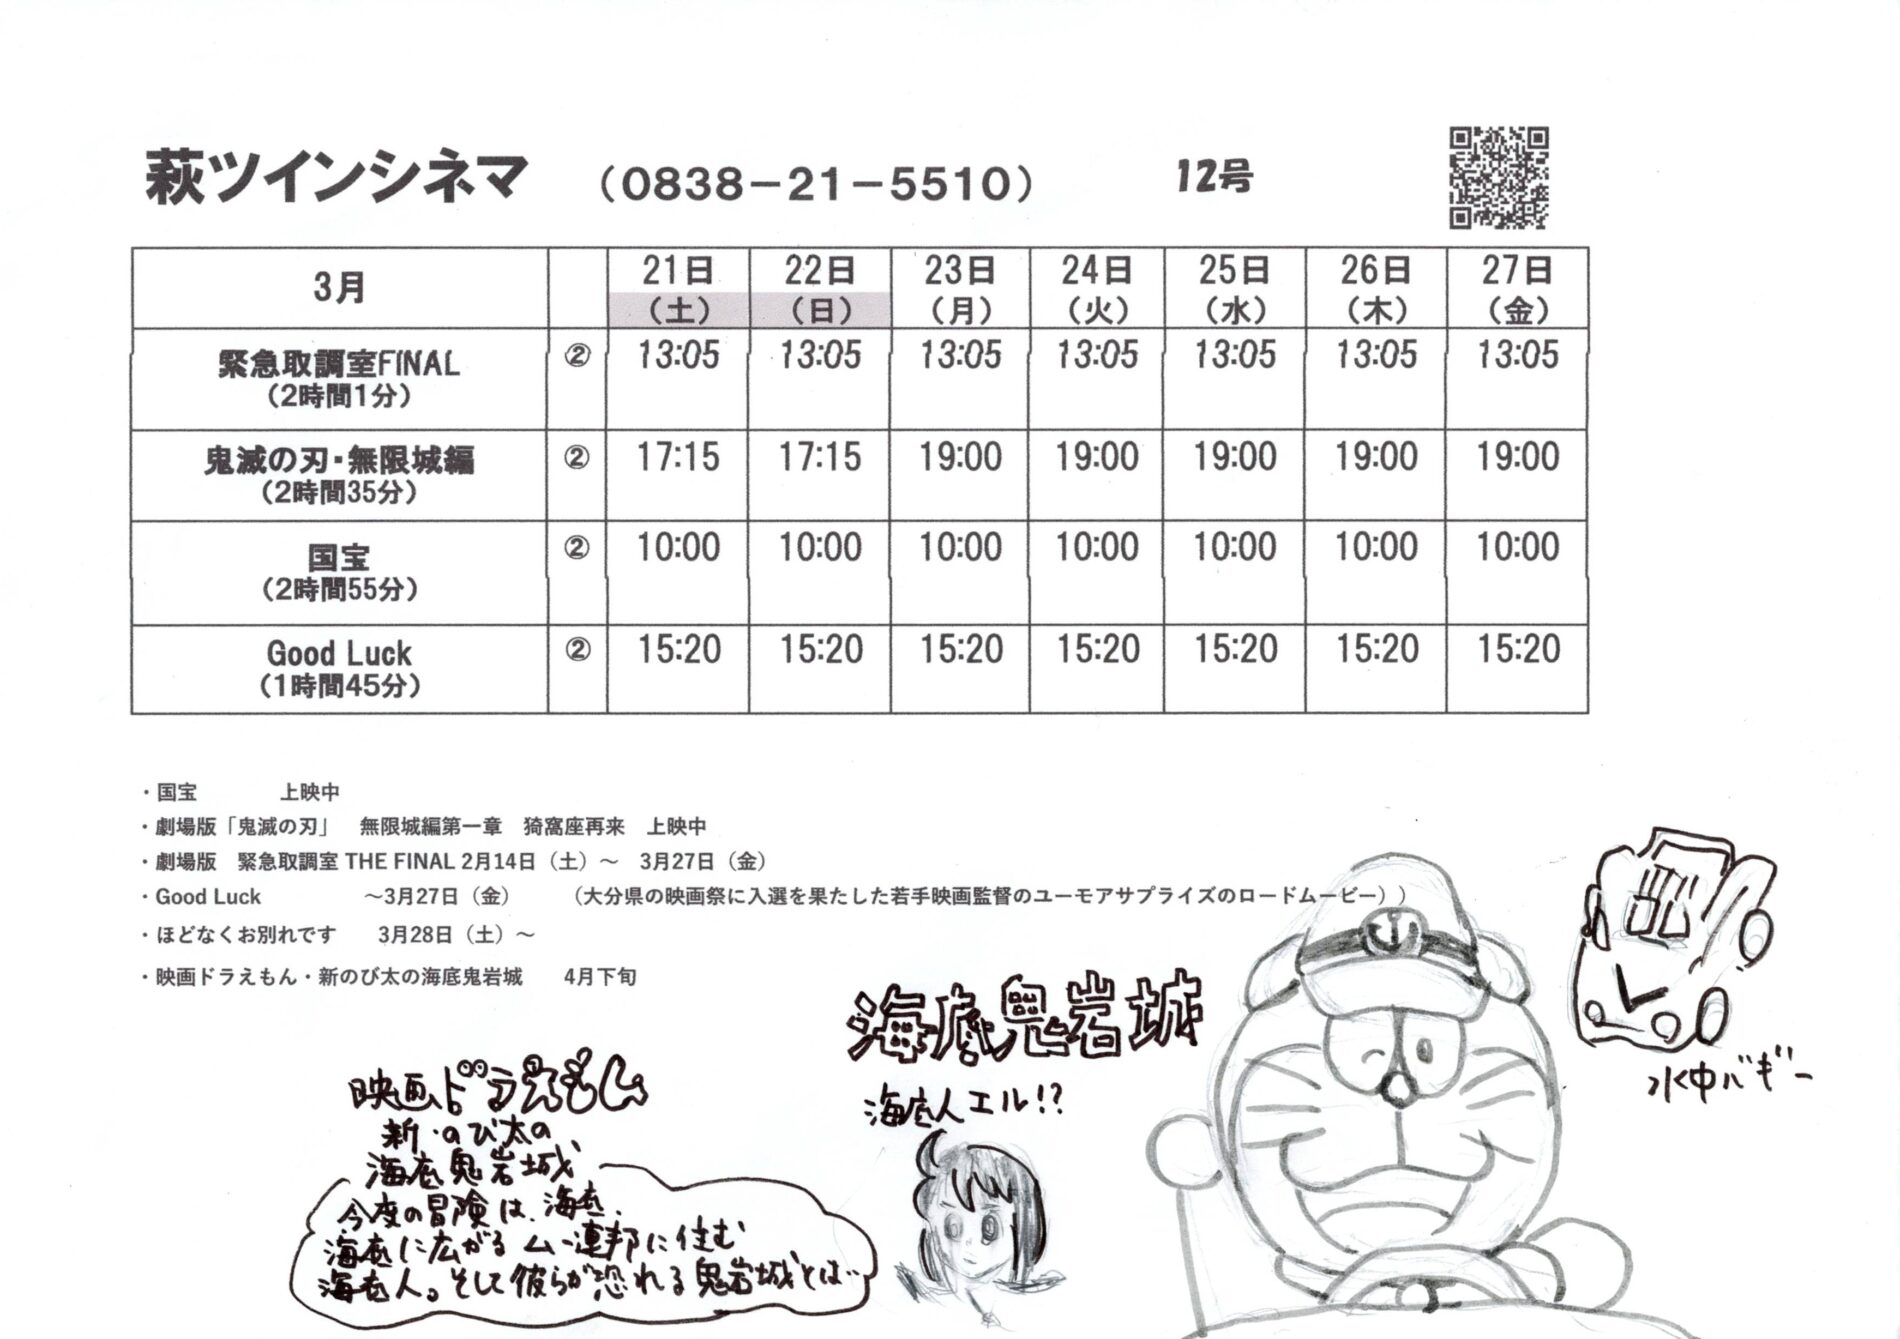 萩ツインシネマ （0838－21－5510） 12号
3月 21日（土） 22日（日） 23日（月） 24日（火） 25日（水） 26日（木） 27日（金）
緊急取調室FINAL（2時間1分） ② 13:05 13:05 13:05 13:05 13:05 13:05 13:05
鬼滅の刃・無限城編（2時間35分） ② 17:15 17:15 19:00 19:00 19:00 19:00 19:00
国宝（2時間55分） ② 10:00 10:00 10:00 10:00 10:00 10:00 10:00
Good Luck（1時間45分） ② 15:20 15:20 15:20 15:20 15:20 15:20 15:20
・国宝 上映中
・劇場版「鬼滅の刃」 無限城編第一章 猗窩座再来 上映中
・劇場版 緊急取調室 THE FINAL 2月14日（土）～ 3月27日（金）
・Good Luck ～3月27日（金） （大分県の映画祭に入選を果たした若手映画監督のユーモアサプライズのロードムービー））
・ほどなくお別れです 3月28日（土）～
・映画ドラえもん・新のび太の海底鬼岩城 4月下旬
海底鬼岩城
海底人エル!?
水中バギー
映画ドラえもん
新・のび太の
海底鬼岩城
今度の冒険は、海底。
海底に広がるムー連邦に住む
海底人。そして彼らが恐れる鬼岩城とは…